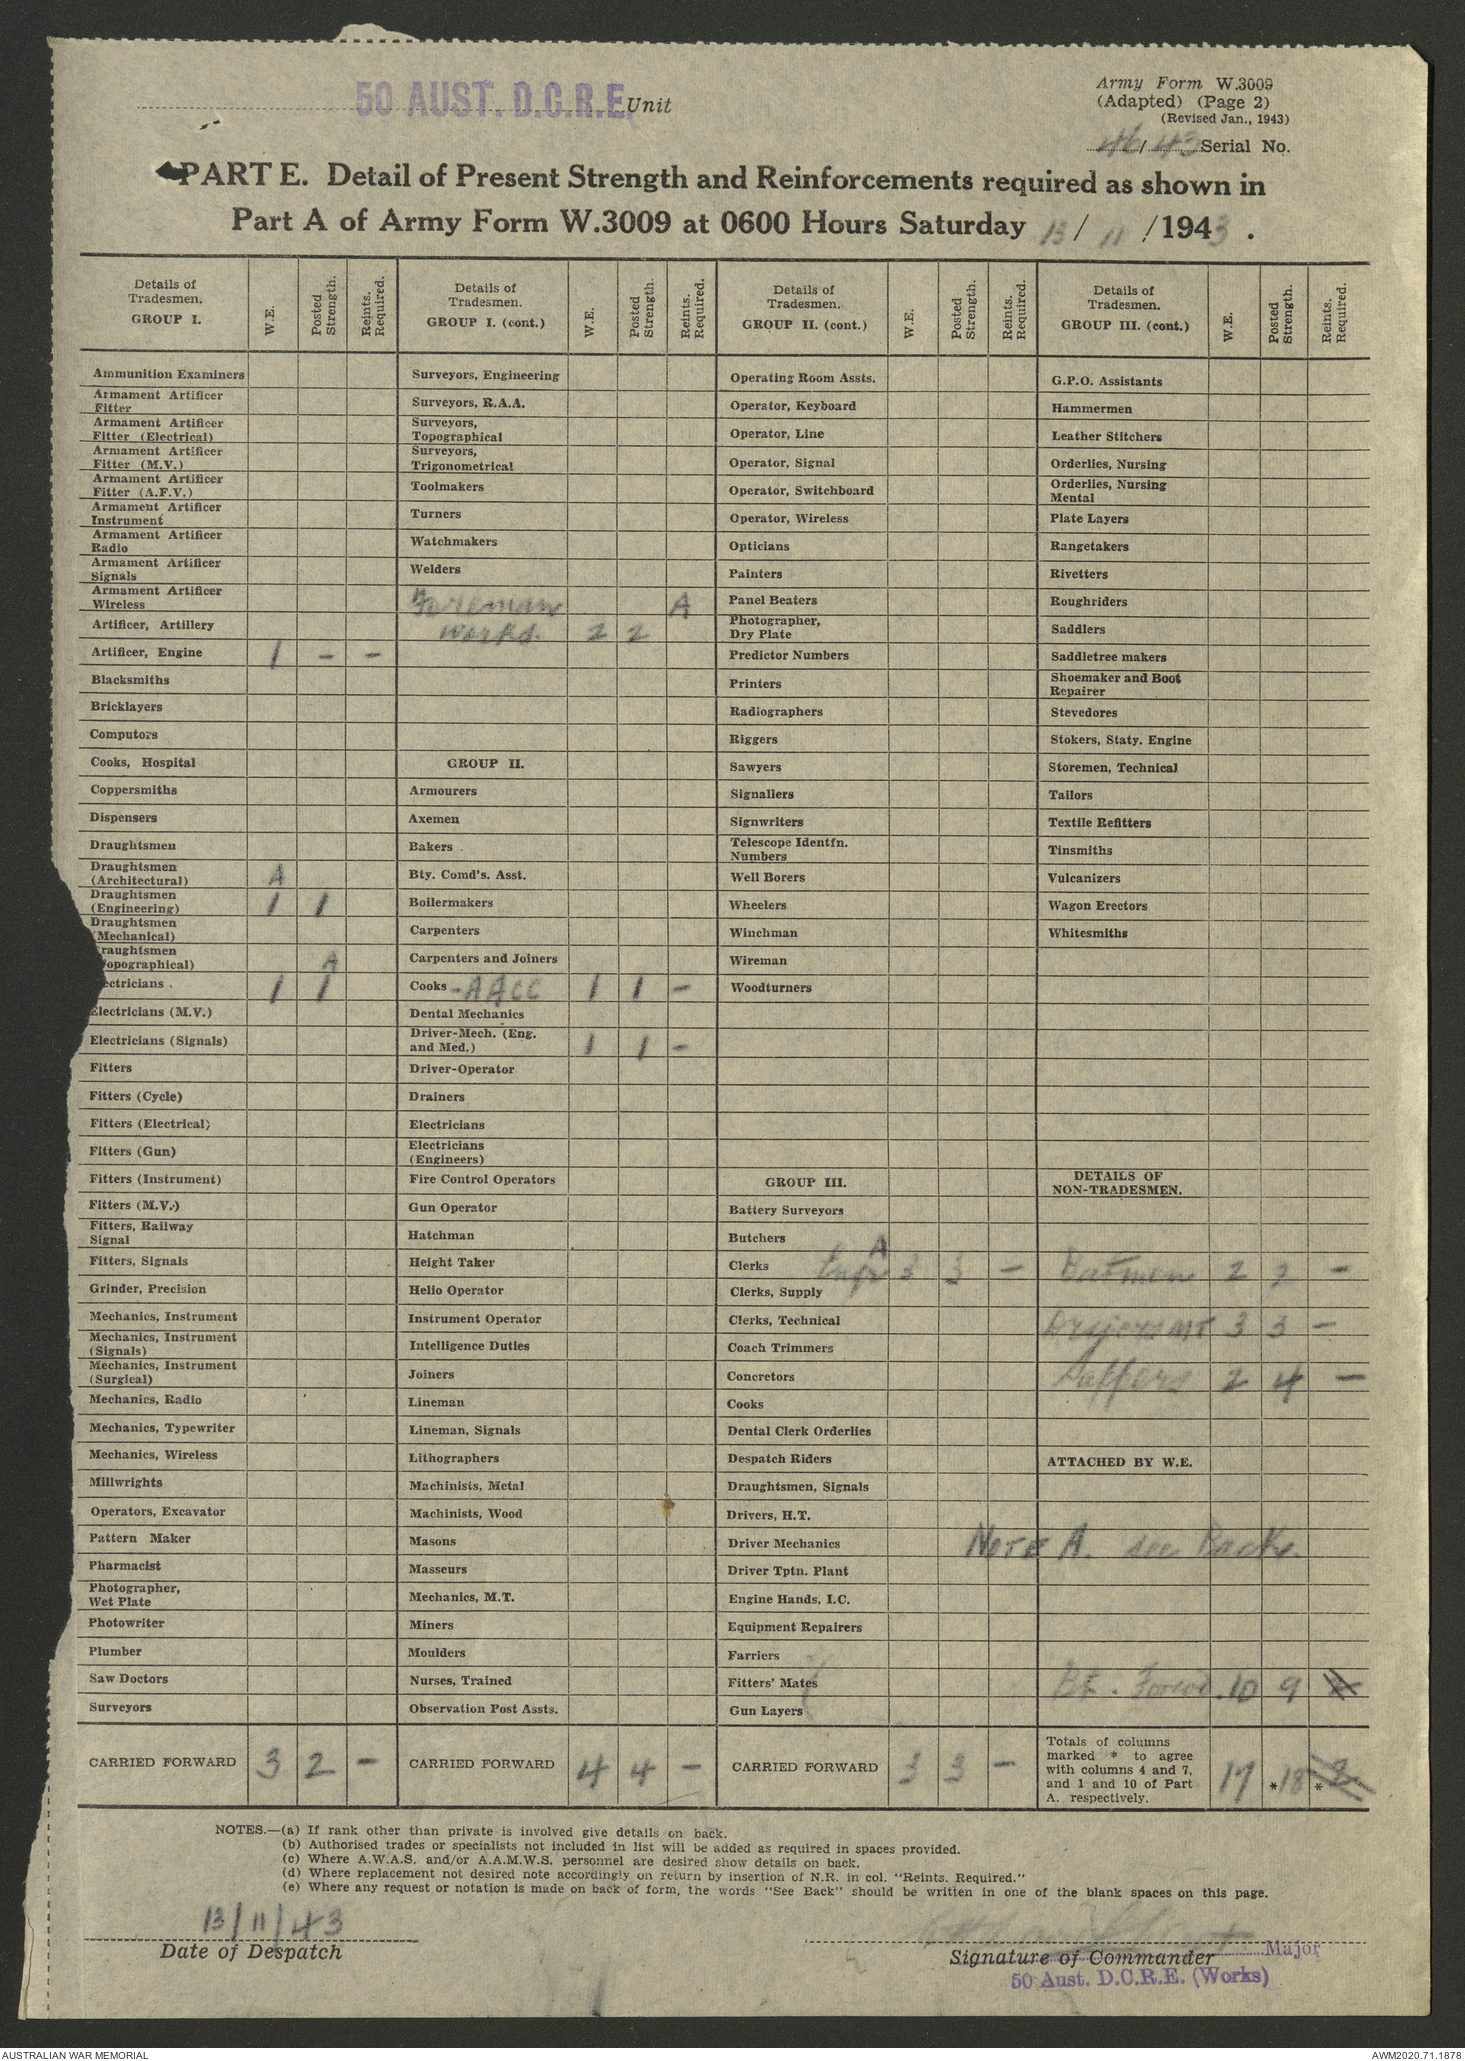 50 AUST. D.C.R.E. Unit
Army Form W.3009
(Adapted) (Page 2)
(Revised Jan., 1943)
46/43 Serial No.
PART E. Detail of Present Strength and Reinforcements required as shown in
Part A of Army Form W.3009 at 0600 Hours Saturday 13/ 11 /1943.
Details of Tradesmen. GROUP I. W.E. Posted Strength. Reints. Required.
Ammunition Examiners
Armament Artificer Fitter
Armament Artificer Fitter (Electrical)
Armament Artificer Fitter (M.V.)
Armament Artificer Fitter (A.F.V.)
Armament Artificer Instrument
Armament Artificer Radio
Armament Artificer Signals
Armament Artificer Wireless
Artificer, Artillery
Artificer, Engine 1 - -
Blacksmiths
Bricklayers
Computors
Cooks, Hospital
Coppersmiths
Dispensers
Draughtsmen
Draughtsmen (Architectural) A
Draughtsmen (Engineering) 1 1
Draughtsmen (Mechanical)
raughtsmen opographical) A
ectricians 1 1
Electricians (M.V.)
Electricians (Signals)
Fitters
Fitters (Cycle)
Fitters (Electrical)
Fitters (Gun)
Fitters (Instrument)
Fitters (M.V.)
Fitters, Railway Signal
Fitters, Signals
Grinder, Precision
Mechanics, Instrument
Mechanics, Instrument (Signals)
Mechanics, Instrument (Surgical)
Mechanics, Radio
Mechanics, Typewriter
Mechanics, Wireless
Millwrights
Operators, Excavator
Pattern Maker
Pharmacist
Photographer, Wet Plate
Photowriter
Plumber
Saw Doctors
Surveyors
CARRIED FORWARD 3 2 -
Details of Tradesmen. GROUP I. (cont.) W.E. Posted Strength. Reints. Required.
Surveyors, Engineering
Surveyors, R.A.A.
Surveyors, Topographical
Surveyors, Trigonometrical
Toolmakers
Turners
Watchmakers
Welders
Foreman A
works. 2 2
GROUP II.
Armourers
Axemen
Bakers
Bty. Comd's. Asst.
Boilermakers
Carpenters
Carpenters and Joiners
Cooks - AACC 1 1 -
Dental Mechanics
Driver-Mech. (Eng. and Med.) 1 1 -
Driver-Operator
Drainers
Electricians
Electricians (Engineers)
Fire Control Operators
Gun Operator
Hatchman
Height Taker
Helio Operator
Instrument Operator
Intelligence Duties
Joiners
Lineman
Lineman, Signals
Lithographers
Machinists, Metal
Machinists, Wood
Masons
Masseurs
Mechanics, M.T.
Miners
Moulders
Nurses, Trained
Observation Post Assts.
CARRIED FORWARD 4 4 -
Details of Tradesmen. GROUP II. (cont.) W.E. Posted Strength. Reints. Required.
Operating Room Assts.
Operator, Keyboard
Operator, Line
Operator, Signal
Operator, Switchboard
Operator, Wireless
Opticians
Painters
Panel Beaters
Photographer, Dry Plate
Predictor Numbers
Printers
Radiographers
Riggers
Sawyers
Signallers
Signwriters
Telescope Identfn. Numbers
Well Borers
Wheelers
Winchman
Wireman
Woodturners
GROUP III.
Battery Surveyors
Butchers
Clerks Engr A 3 3 -
Clerks, Supply
Clerks, Technical
Coach Trimmers
Concretors
Cooks
Dental Clerk Orderlies
Despatch Riders
Draughtsmen, Signals
Drivers, H.T.
Driver Mechanics
Driver Tptn. Plant
Engine Hands, I.C.
Equipment Repairers
Farriers
Fitters' Mates
Gun Layers
CARRIED FORWARD 3 3 -
Details of Tradesmen. GROUP III. (cont.) W.E. Posted Strength. Reints. Required.
G.P.O. Assistants
Hammermen
Leather Stitchers
Orderlies, Nursing
Orderlies, Nursing Mental
Plate Layers
Rangetakers
Rivetters
Roughriders
Saddlers
Saddletree makers
Shoemaker and Boot Repairer
Stevedores
Stokers, Staty. Engine
Storemen, Technical
Tailors
Textile Refitters
Tinsmiths
Vulcanizers
Wagon Erectors
Whitesmiths
DETAILS OF NON-TRADESMEN.
Batmen 2 2 -
Drivers MT 3 3 -
Sappers 2 4 -
ATTACHED BY W.E.
Note A. see Back.
Bt. Forwd. 10 9
Totals of columns marked * to agree with columns 4 and 7, and 1 and 10 of Part A. respectively. 17 *18 *
NOTES.—(a) If rank other than private is involved give details on back.
(b) Authorised trades or specialists not included in list will be added as required in spaces provided.
(c) Where A.W.A.S. and/or A.A.M.W.S. personnel are desired show details on back.
(d) Where replacement not desired note accordingly on return by insertion of N.R. in col. "Reints. Required."
(e) Where any request or notation is made on back of form, the words "See Back" should be written in one of the blank spaces on this page.
13/11/43
Date of Despatch
Signature of Commander Major
50 Aust. D.C.R.E. (Works)
AUSTRALIAN WAR MEMORIAL
AWM2020.71.1878